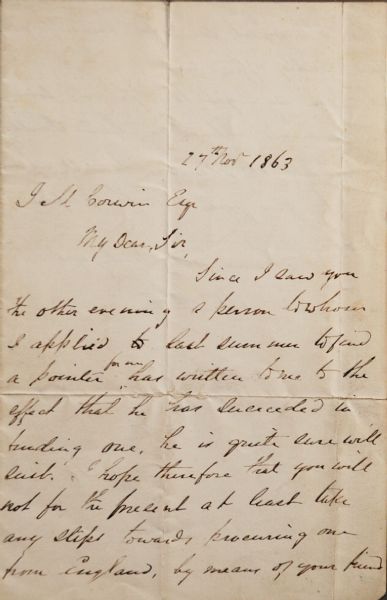 27th Nov 1863
J M Corwin Esqr
My Dear Sir,
Since I saw you
the other evening a person to whom
I applied to last summer to find
a pointer for me, has written to me to the
effect that he has succeeded in
finding one, he is quite sure will
suit. I hope therefore that you will
not for the present at least take
any steps towards procuring one
from England, by means of your friend